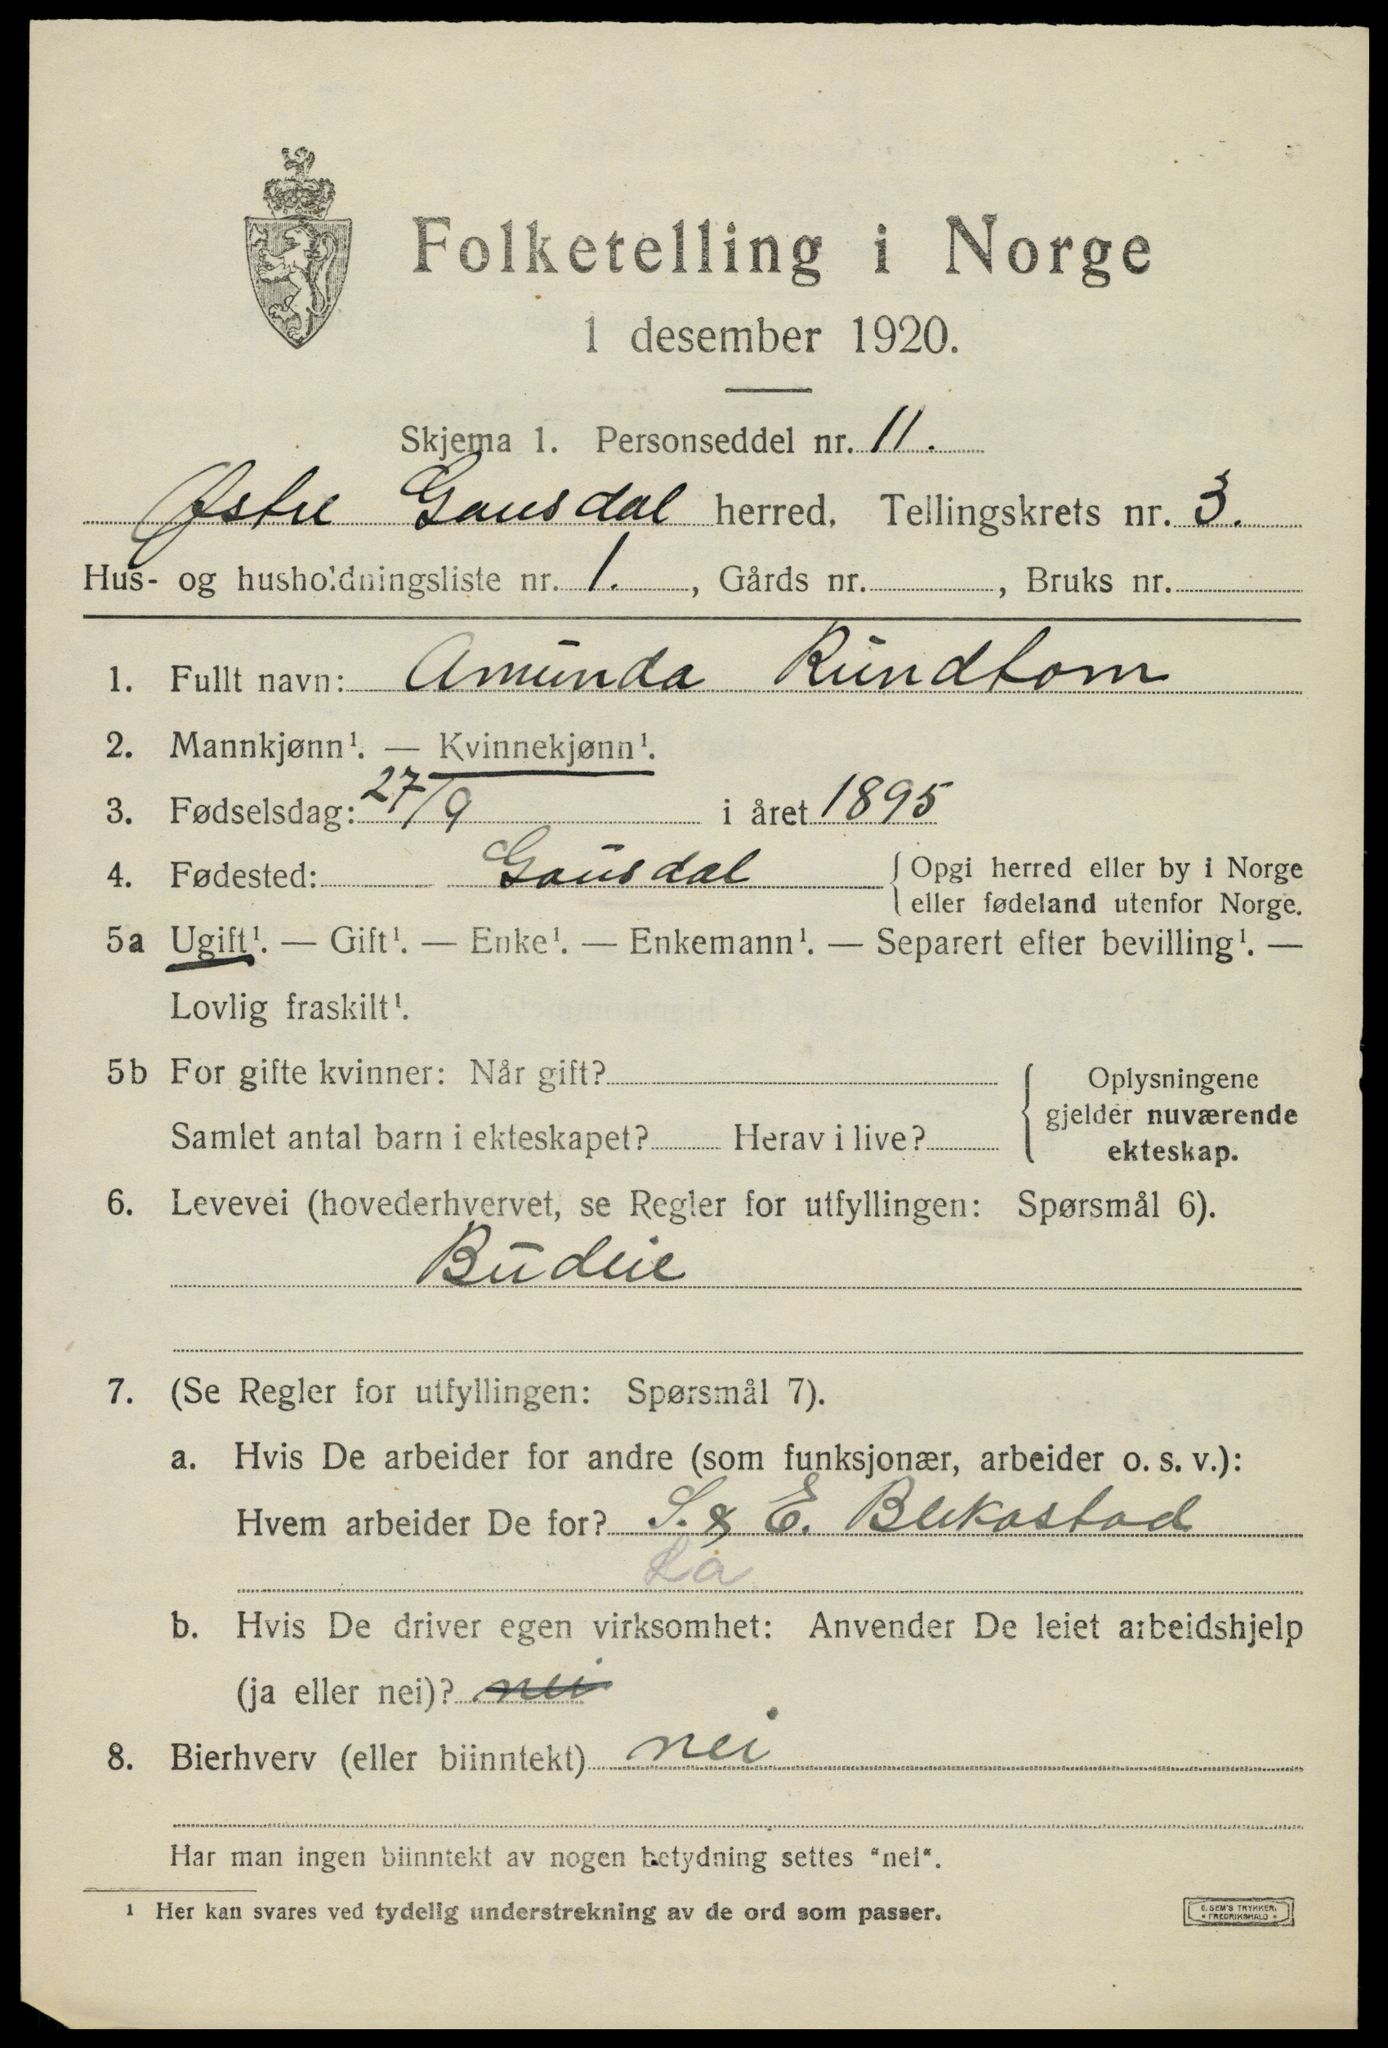 Folketelling i Norge
1 desember 1920.
Skjema 1. Personseddel nr. 11.
Østre Gausdal herred. Tellingskrets nr. 3.
Hus- og husholdningsliste nr. 1. , Gårds nr. , Bruks nr.
1. Fullt navn: Amunda Rundtom
2. Mannkjønn¹. — Kvinnekjønn¹.
3. Fødselsdag: 27/9 i året 1895
4. Fødested: Gausdal { Opgi herred eller by i Norge
eller fødeland utenfor Norge.
5a Ugift¹. — Gift¹. — Enke¹. — Enkemann¹. — Separert efter bevilling¹. —
Lovlig fraskilt¹.
5b For gifte kvinner: Når gift? { Oplysningene
gjelder nuværende
Samlet antal barn i ekteskapet? Herav i live?
ekteskap.
6. Levevei (hovederhvervet, se Regler for utfyllingen: Spørsmål 6).
Budeie
7. (Se Regler for utfyllingen: Spørsmål 7).
a. Hvis De arbeider for andre (som funksjonær, arbeider o. s. v.):
Hvem arbeider De for? S. & E. Blekastad
La
b. Hvis De driver egen virksomhet: Anvender De leiet arbeidshjelp
(ja eller nei)? nei
8. Bierhverv (eller biinntekt) nei
Har man ingen biinntekt av nogen betydning settes "nei".
¹ Her kan svares ved tydelig understrekning av de ord som passer.
E. SEM'S TRYKKERI
FREDRIKSHALD